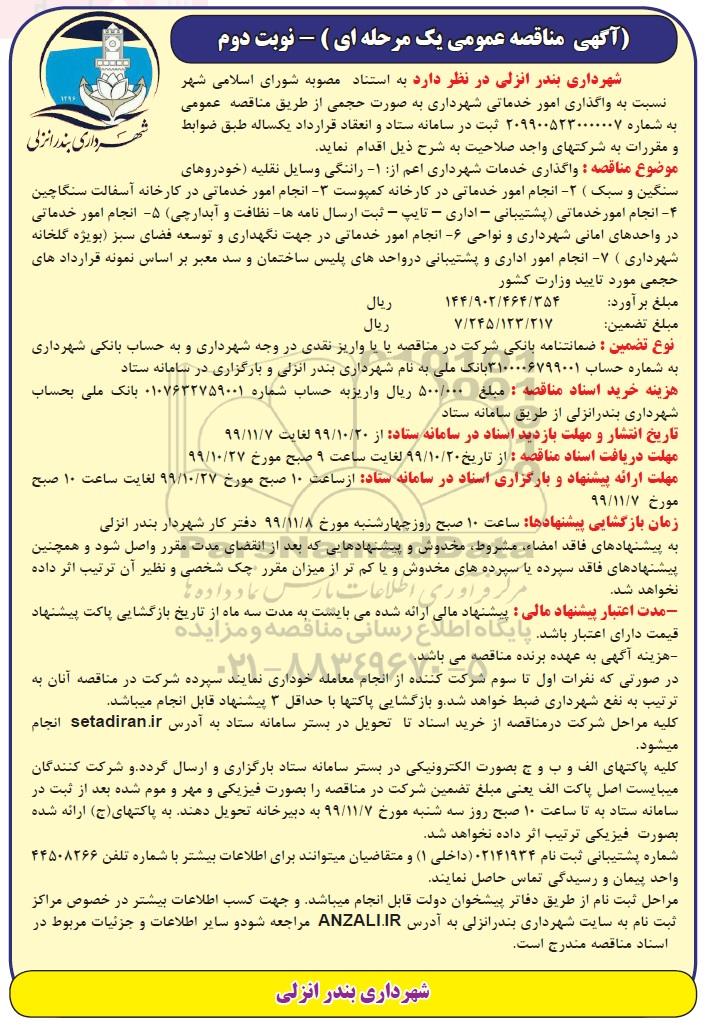 (آگهی مناقصه عمومی یک مرحله ای ) - نوبت دوم
۱۲۹۶
شهرداری بندرانزلی
شهرداری بندر انزلی در نظر دارد به استناد مصوبه شورای اسلامی شهر
نسبت به واگذاری امور خدماتی شهرداری به صورت حجمی از طریق مناقصه عمومی
به شماره ۲۰۹۹۰۰۵۲۳۰۰۰۰۰۰۷ ثبت در سامانه ستاد و انعقاد قرارداد یکساله طبق ضوابط
و مقررات به شرکتهای واجد صلاحیت به شرح ذیل اقدام نماید.
موضوع مناقصه : واگذاری خدمات شهرداری اعم از: ۱- راننگی وسایل نقلیه (خودروهای
سنگین و سبک ) ۲- انجام امور خدماتی در کارخانه کمپوست ۳- انجام امور خدماتی در کارخانه آسفالت سنگاچین
۴- انجام امورخدماتی (پشتیبانی – اداری – تایپ – ثبت ارسال نامه ها- نظافت و آبدارچی) ۵- انجام امور خدماتی
در واحدهای امانی شهرداری و نواحی ۶- انجام امور خدماتی در جهت نگهداری و توسعه فضای سبز (بویژه گلخانه
شهرداری ) ۷- انجام امور اداری و پشتیبانی درواحد های پلیس ساختمان و سد معبر بر اساس نمونه قرارداد های
حجمی مورد تایید وزارت کشور
مبلغ برآورد: ۱۴۴/۹۰۲/۴۶۴/۳۵۴ ریال
مبلغ تضمین: ۷/۲۴۵/۱۲۳/۲۱۷ ریال
نوع تضمین : ضمانتنامه بانکی شرکت در مناقصه یا یا واریز نقدی در وجه شهرداری و به حساب بانکی شهرداری
به شماره حساب ۳۱۰۰۰۰۶۷۹۹۰۰۱بانک ملی به نام شهرداری بندر انزلی و بارگزاری در سامانه ستاد
هزینه خرید اسناد مناقصه : مبلغ ۵۰۰/۰۰۰ ریال واریزبه حساب شماره ۰۱۰۷۶۳۲۷۵۹۰۰۱ بانک ملی بحساب
شهرداری بندرانزلی از طریق سامانه ستاد
تاریخ انتشار و مهلت بازدید اسناد در سامانه ستاد: از ۹۹/۱۰/۲۰ لغایت ۹۹/۱۱/۷
مهلت دریافت اسناد مناقصه : از تاریخ۹۹/۱۰/۲۰ لغایت ساعت ۹ صبح مورخ ۹۹/۱۰/۲۷
مهلت ارائه پیشنهاد و بارگزاری اسناد در سامانه ستاد: ازساعت ۱۰ صبح مورخ ۹۹/۱۰/۲۷ لغایت ساعت ۱۰ صبح
مورخ ۹۹/۱۱/۷
زمان بازگشایی پیشنهادها: ساعت ۱۰ صبح روزچهارشنبه مورخ ۹۹/۱۱/۸ دفتر کار شهردار بندر انزلی
به پیشنهادهای فاقد امضاء، مشروط، مخدوش و پیشنهادهایی که بعد از انقضای مدت مقرر واصل شود و همچنین
پیشنهادهای فاقد سپرده یا سپرده های مخدوش و یا کم تر از میزان مقرر چک شخصی و نظیر آن ترتیب اثر داده
نخواهد شد.
-مدت اعتبار پیشنهاد مالی : پیشنهاد مالی ارائه شده می بایست به مدت سه ماه از تاریخ بازگشایی پاکت پیشنهاد
قیمت دارای اعتبار باشد.
-هزینه آگهی به عهده برنده مناقصه می باشد.
در صورتی که نفرات اول تا سوم شرکت کننده از انجام معامله خوداری نمایند سپرده شرکت در مناقصه آنان به
ترتیب به نفع شهرداری ضبط خواهد شد.و بازگشایی پاکتها با حداقل ۳ پیشنهاد قابل انجام میباشد.
کلیه مراحل شرکت درمناقصه از خرید اسناد تا تحویل در بستر سامانه ستاد به آدرس setadiran.ir انجام
میشود.
کلیه پاکتهای الف و ب و ج بصورت الکترونیکی در بستر سامانه ستاد بارگزاری و ارسال گردد.و شرکت کنندگان
میبایست اصل پاکت الف یعنی مبلغ تضمین شرکت در مناقصه را بصورت فیزیکی و مهر و موم شده بعد از ثبت در
سامانه ستاد به تا ساعت ۱۰ صبح روز سه شنبه مورخ ۹۹/۱۱/۷ به دبیرخانه تحویل دهند. به پاکتهای(ج) ارائه شده
بصورت فیزیکی ترتیب اثر داده نخواهد شد.
شماره پشتیبانی ثبت نام ۰۲۱۴۱۹۳۴(داخلی ۱) و متقاضیان میتوانند برای اطلاعات بیشتر با شماره تلفن ۴۴۵۰۸۲۶۶
واحد پیمان و رسیدگی تماس حاصل نمایند.
مراحل ثبت نام از طریق دفاتر پیشخوان دولت قابل انجام میباشد. و جهت کسب اطلاعات بیشتر در خصوص مراکز
ثبت نام به سایت شهرداری بندرانزلی به آدرس ANZALI.IR مراجعه شودو سایر اطلاعات و جزئیات مربوط در
اسناد مناقصه مندرج است.
شهرداری بندر انزلی
ParsNamadData
مرکز فرآوری اطلاعات پارس نماد داده ها
پایگاه اطلاع رسانی مناقصه و مزایده
۰۲۱-۸۸۳۴۹۶۷۰-۵